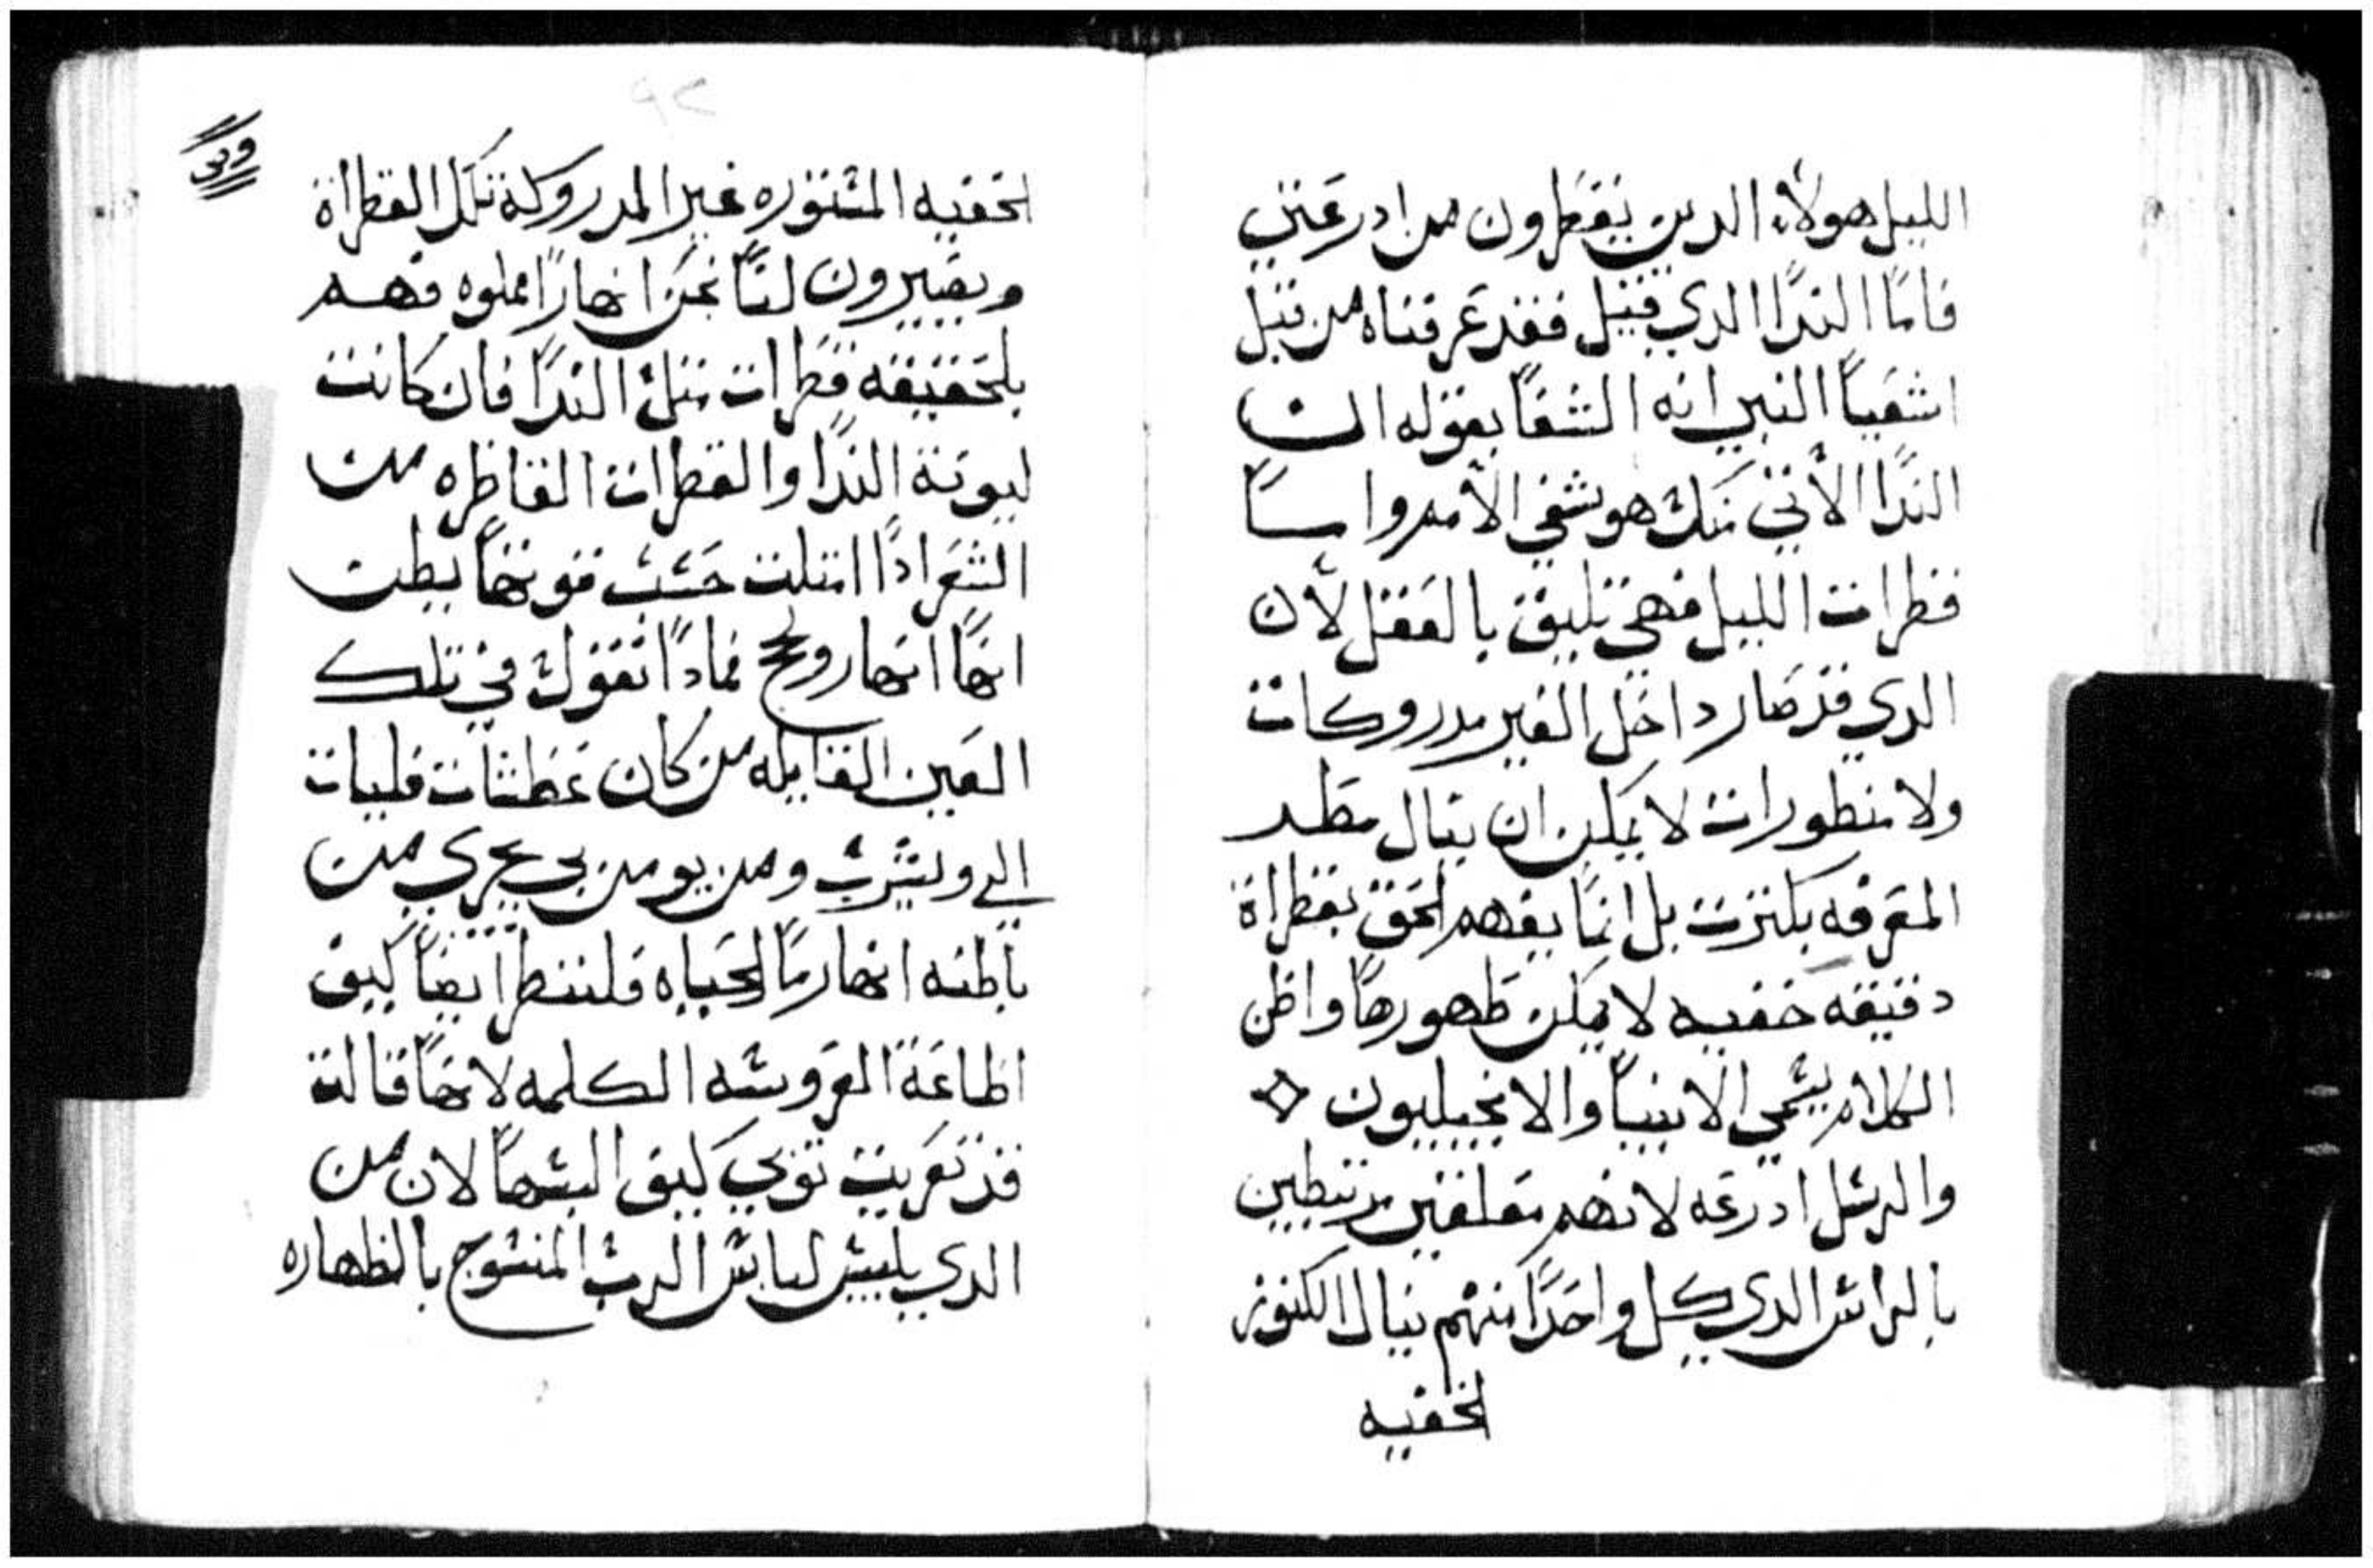 الليل هولاء الدين يقطرون من ادرعتي
فامًا الندًا الدي قيل فقد عرفناه من قبل
اشعياً النبي انه الشفًا بقوله ان
الندًا الأتي منك هو شفي الأمهم واساً
قطرات الليل فهي تليق بالعقل لأن
الدي قد صار داخل الغير مدروكات
ولا منطورات لا يمكن ان ينال مطر
المعرفه بكترت بل انمًا يفهم الحق بقطراة
دقيقه خفيه لا يمكن ظهورهاً واظن
الكلام يسمي الانبياً والانجيليون
والرسل ادرعه لانهم معلقين مرتبطين
بالراس الدي كل واحدًا منهم ينال الكنوز
الخفيه
الخفيه المستوره غير المدروكة تلك القطراة
ويصيرون لنًا نحن انهارًا مملوه فهم
بلحقيقه قطرات تلك الندًا فان كانت
ليونة الندًا والقطرات القاطره من
الشعر ادًا امتلت حسب قوتهاً بطت
انهاً انهار ولجج فمادًا نقول في تلك
العين القايله من كان عطشات فليات
الي ويشرب ومن يومن بي يجري من
باطنه انهار مًا الحياه فلننطر ايضاً كيف
اطاعة العروسه الكلمه لانهاً قالت
قد تعريت توبي كيف البسهاً لان من
الدي يلبس لباس الرب المنسوج بالطهاره